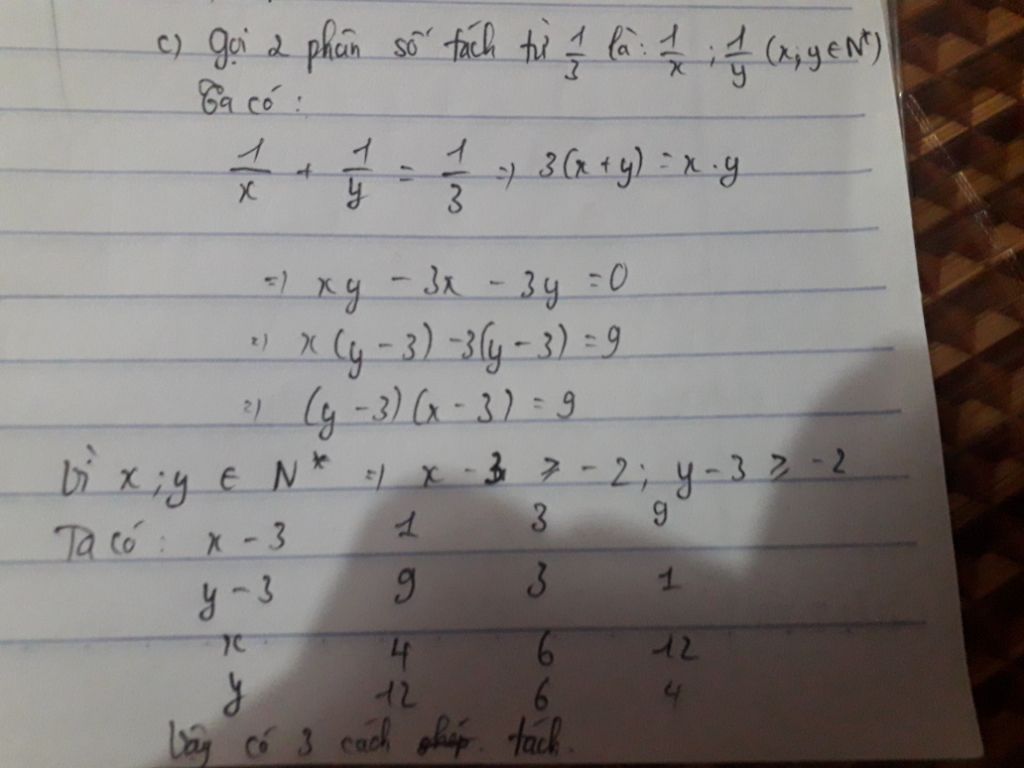 c) Gọi 2 phân số tách từ 1/3 là: 1/x ; 1/y (x; y ∈ N*)
Ta có:
1/x + 1/y = 1/3 => 3(x + y) = x . y
=> xy - 3x - 3y = 0
=> x(y - 3) - 3(y - 3) = 9
=> (y - 3)(x - 3) = 9
Vì x; y ∈ N* => x - 3 ≥ -2; y - 3 ≥ -2
Ta có: x - 3 1 3 9
y - 3 9 3 1
x 4 6 12
y 12 6 4
Vậy có 3 cách tách.